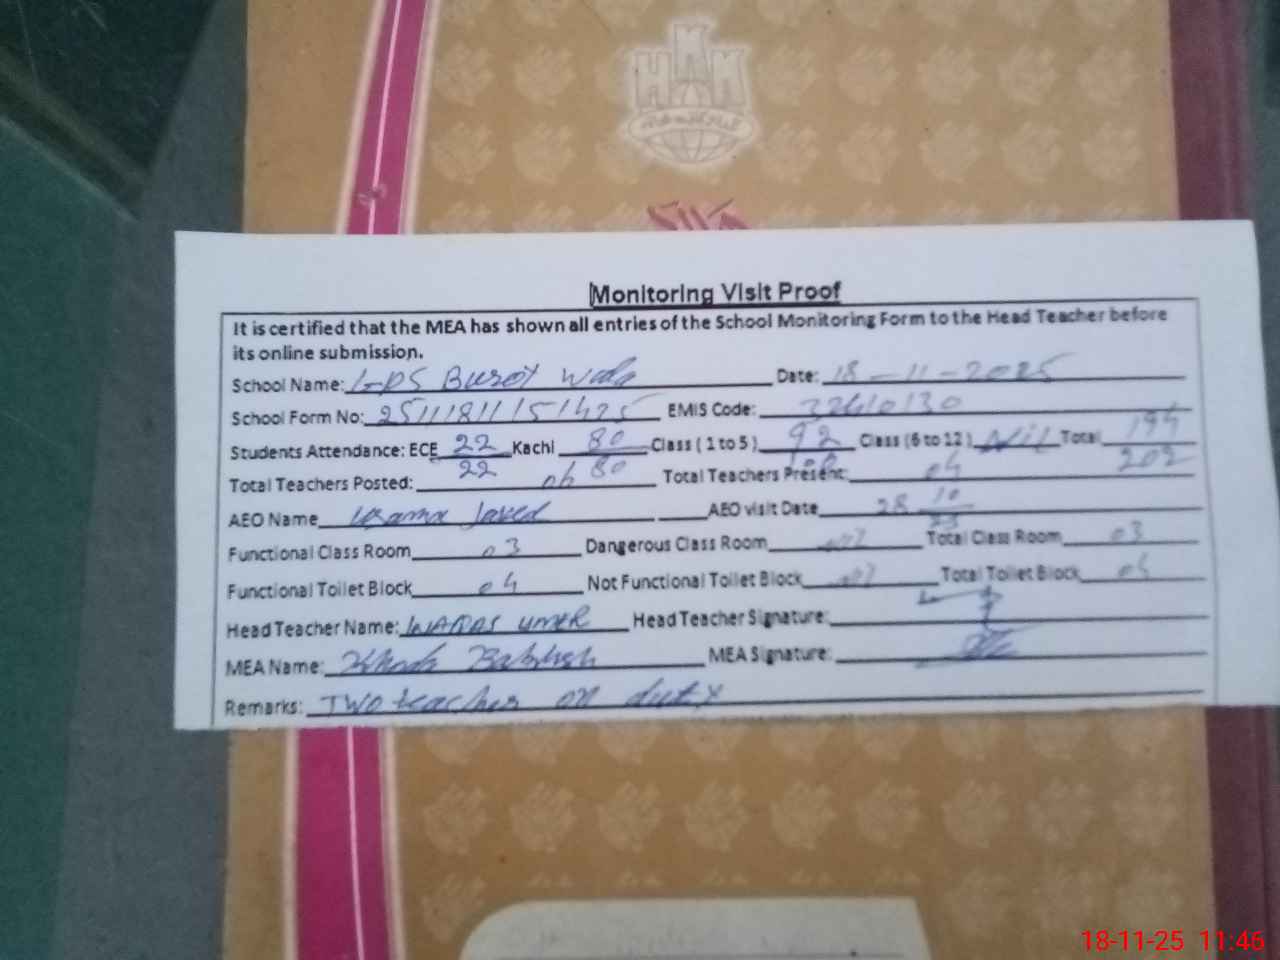 HMKM
Monitoring Visit Proof
It is certified that the MEA has shown all entries of the School Monitoring Form to the Head Teacher before
its online submission.
School Name: GPS Burot Wala Date: 18-11-2025
School Form No: 25111811151425 EMIS Code: 32410130
Students Attendance: ECE 22 Kachi 80 Class (1 to 5) 92 Class (6 to 12) Nil Total 194
22 80 100 202
Total Teachers Posted: 06 Total Teachers Present: 04
AEO Name Usama Javed AEO visit Date 28 10 25
Functional Class Room 03 Dangerous Class Room Total Class Room 03
Functional Toilet Block 04 Not Functional Toilet Block Total Toilet Block 04
Head Teacher Name: WAQAS UMER Head Teacher Signature:
MEA Name: Khuda Bakhsh MEA Signature:
Remarks: Two teacher on duty
18-11-25 11:46